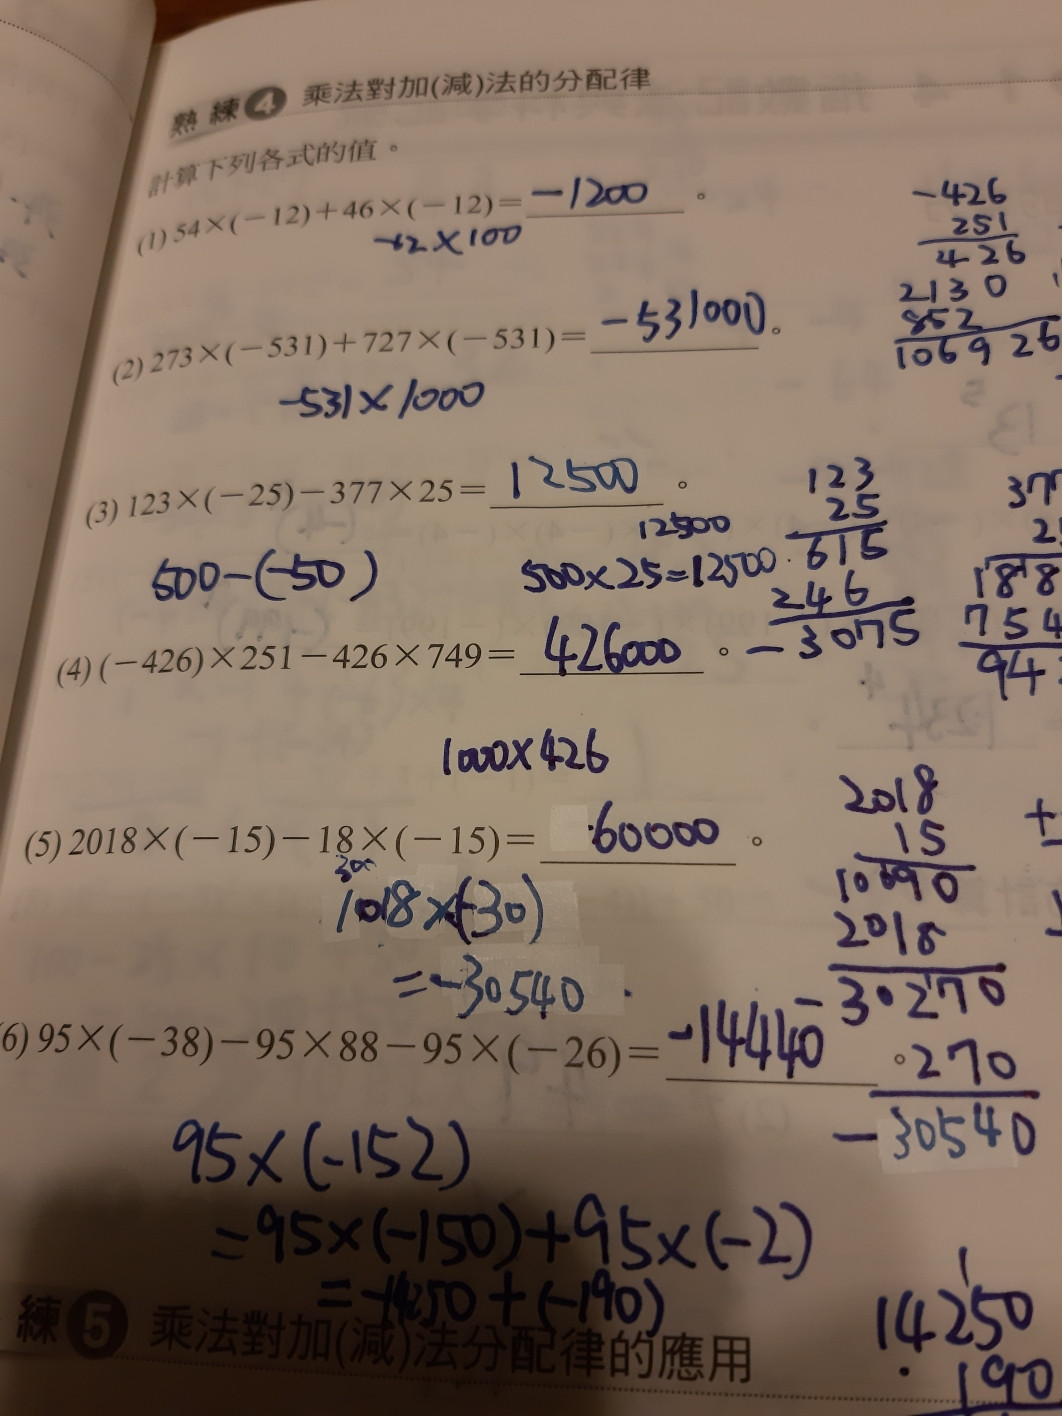 熟練4 乘法對加(減)法的分配律
計算下列各式的值。
(1) 54×(-12)+46×(-12)= -1200 。
-12×100
-426
251
426
2130
852
106926
(2) 273×(-531)+727×(-531)= -531000 。
-531×1000
(3) 123×(-25)-377×25= 12500 。
500-(-50)
12500
500×25=12500
123
25
615
246
-3075
377
2
188
754
94
(4) (-426)×251-426×749= 426000 。
1000×426
(5) 2018×(-15)-18×(-15)= 60000 。
1018×(-30)
=-30540
2018
15
10090
2018
-30270
270
-30540
(6) 95×(-38)-95×88-95×(-26)= -14440 。
95×(-152)
=95×(-150)+95×(-2)
=-14250+(-190)
1
14250
190
練5 乘法對加(減)法分配律的應用